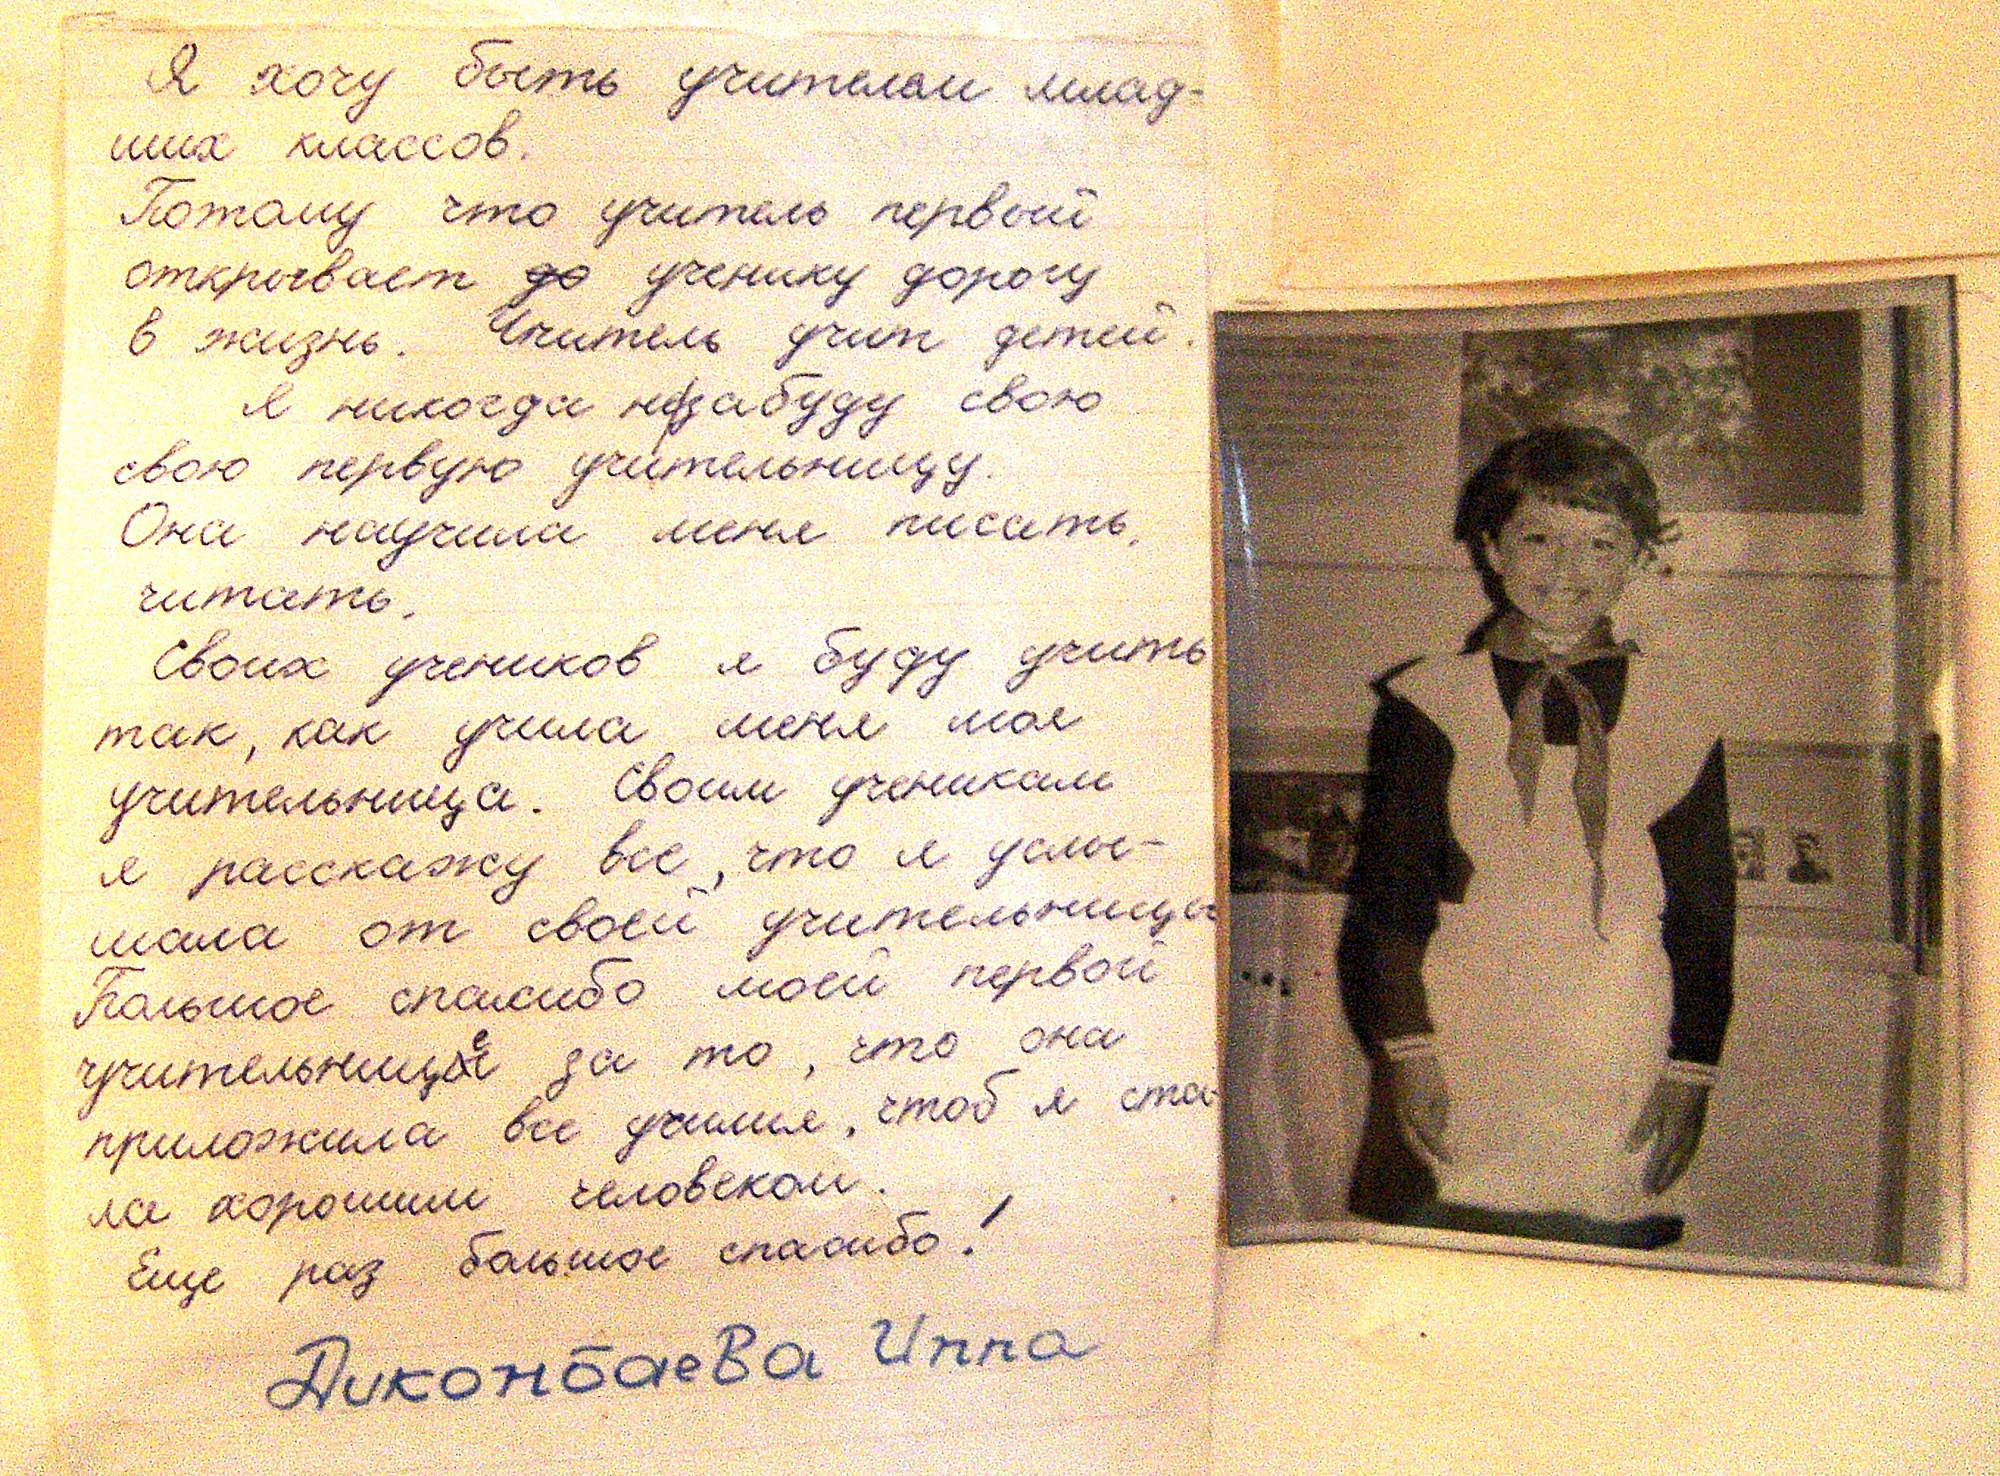 Я хочу быть учителем млад-
ших классов.
Потому что учитель первый
открывает до ученику дорогу
в жизнь. Учитель учит детей.
Я никогда не забуду свою
свою первую учительницу.
Она научила меня писать,
читать.
Своих учеников я буду учить
так, как учила меня моя
учительница. Своим ученикам
я расскажу все, что я услы-
шала от своей учительницы
Большое спасибо моей первой
учительнице за то, что она
приложила все усилия, чтоб я ста-
ла хорошим человеком.
Еще раз большое спасибо!